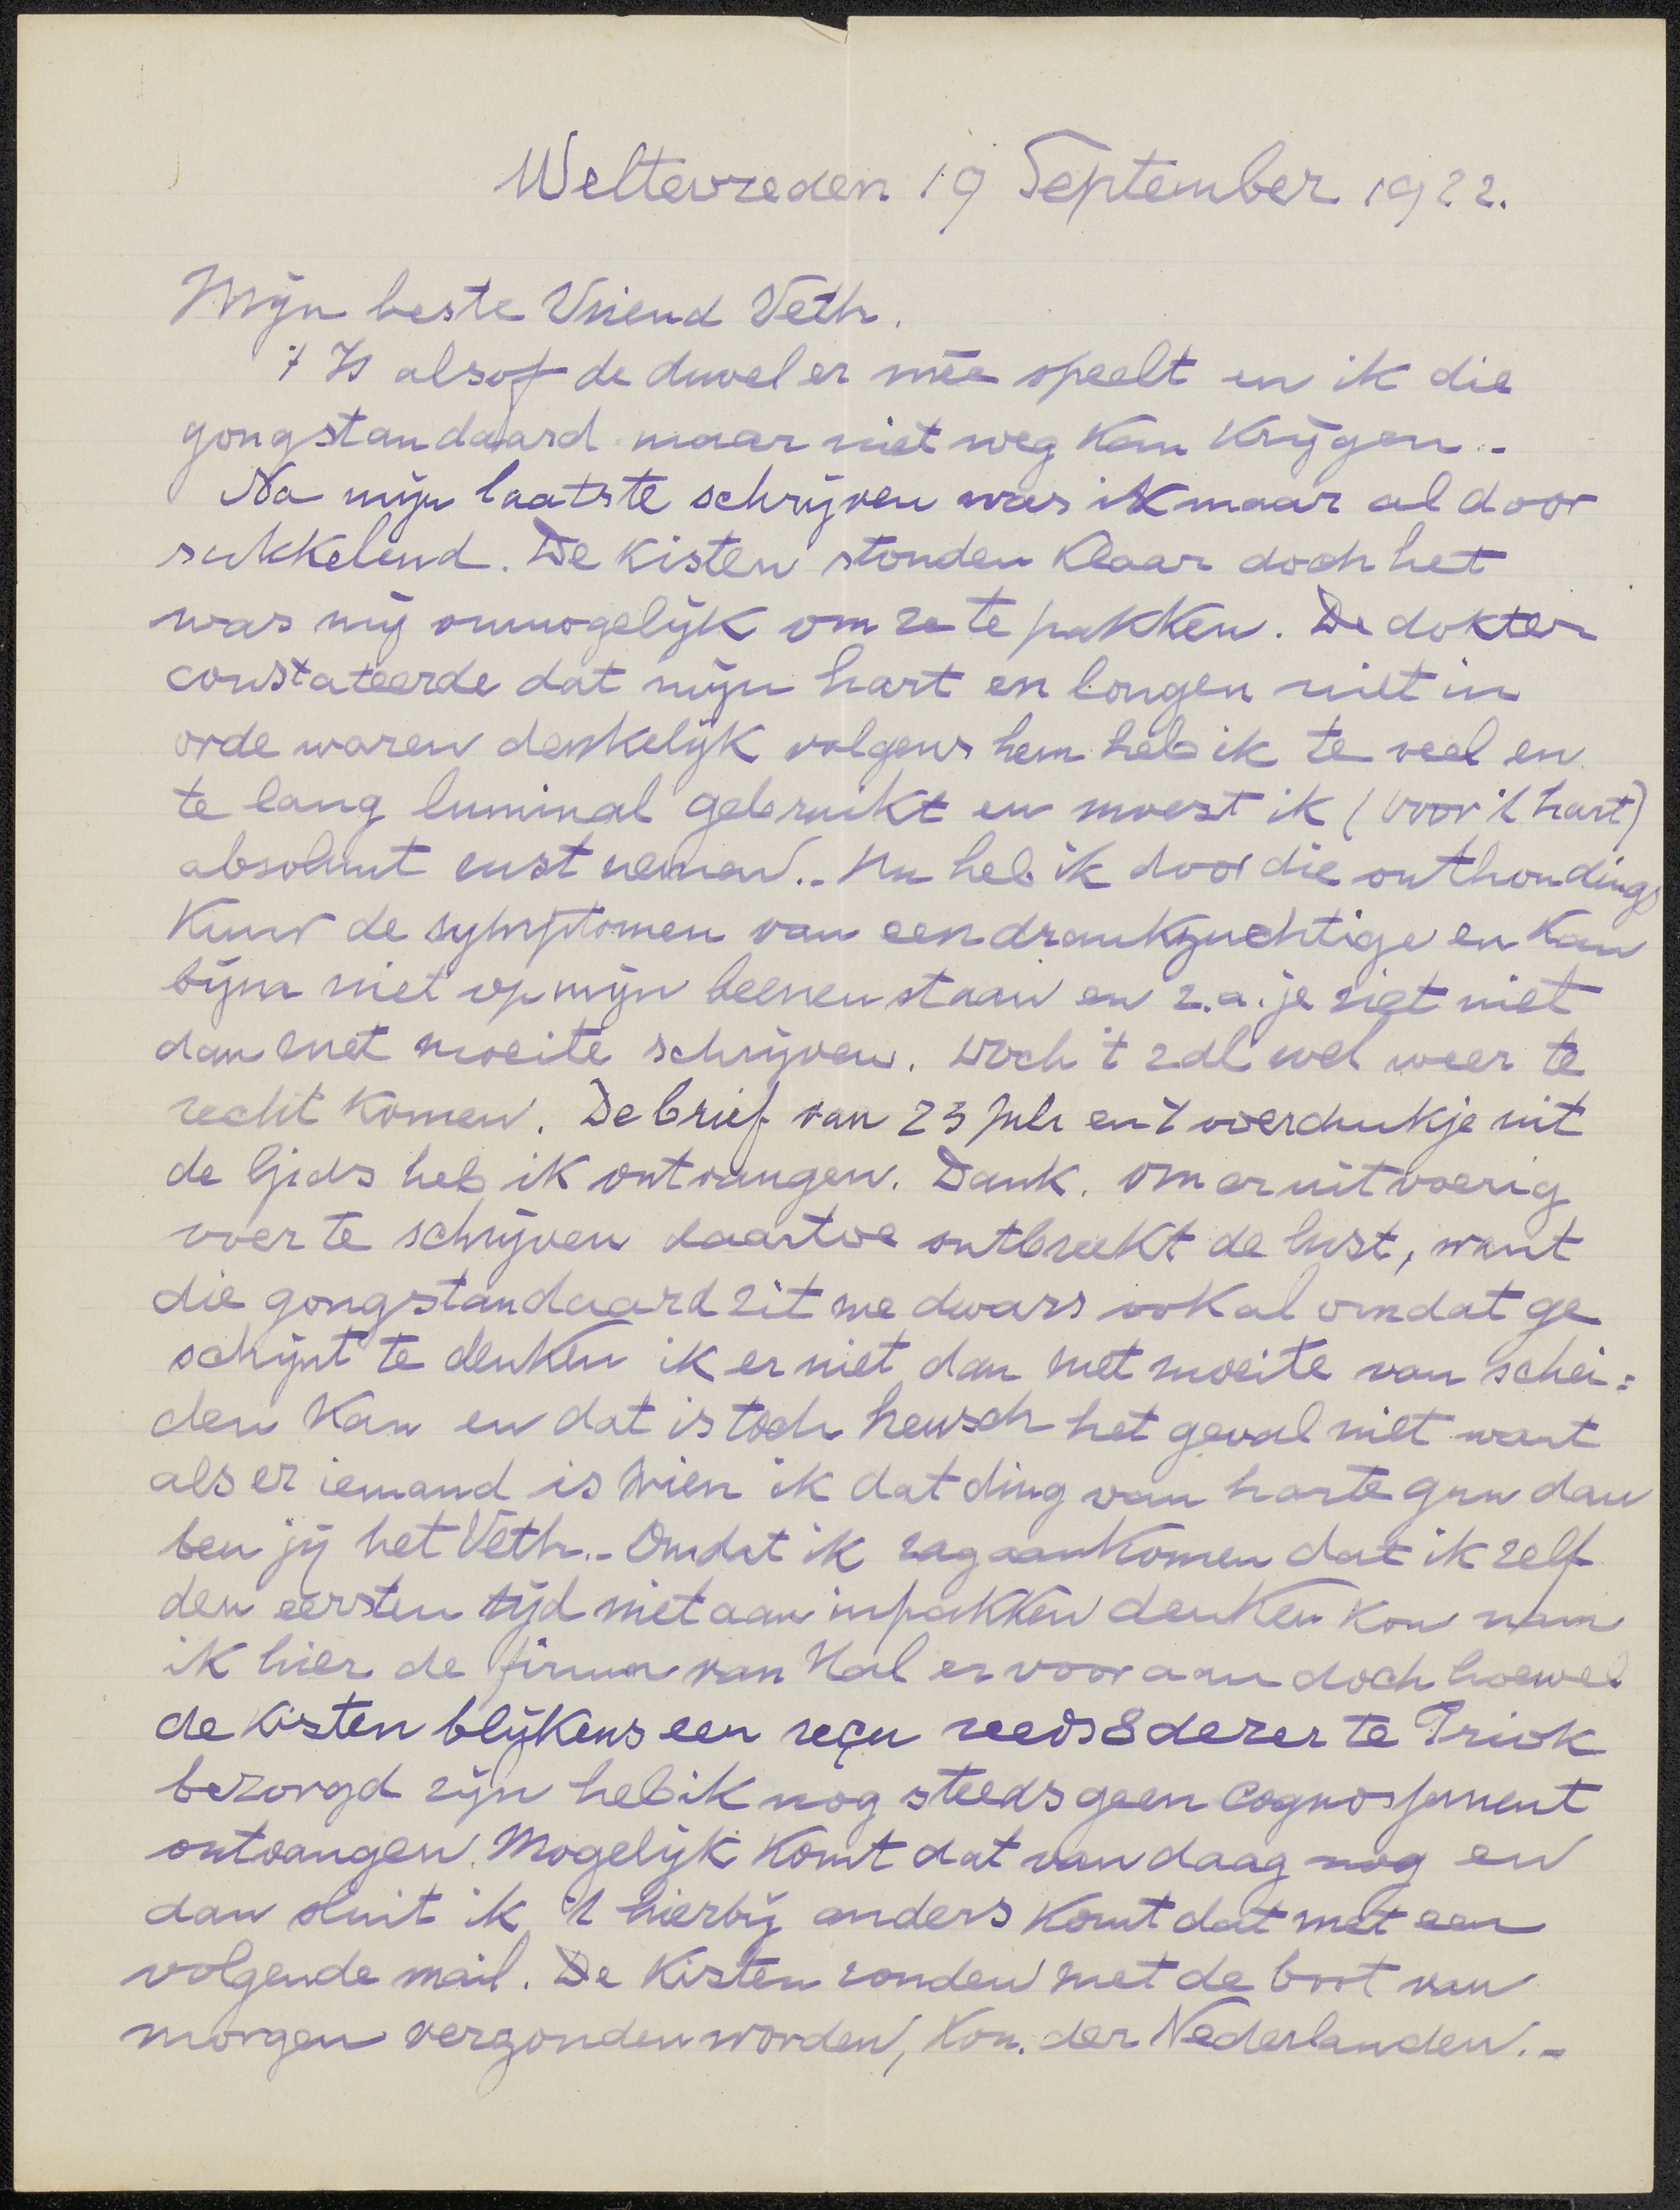 Weltevreden 19 September 1922.
Mijn beste Vriend Veth.
't Is alsof de duvel er mêe speelt en ik die
gongstandaard maar niet weg kan krijgen..-
Na mijn laatste schrijven was ik maar al door
sukkelend. De kisten stonden klaar doch het
was mij onmogelijk om ze te pakken. De dokter
constateerde dat mijn hart en longen niet in
orde waren denkelijk volgens hem heb ik te veel en
te lang luminal gebruikt en moest ik (voor 't hart)
absoluut rust nemen..- Nu heb ik door die onthoudings
kuur de symptomen van een drankzuchtige en kan
bijna niet op mijn beenen staan en z.a. je ziet niet
dan met moeite schrijven. Doch 't zal wel weer te
recht komen. De brief van 23 Juli en 't overdrukje uit
de Gids heb ik ontvangen. Dank. Om er uitvoerig
over te schrijven daartoe ontbreekt de lust, want
die gongstandaard zit me dwars ook al omdat ge
schijnt te denken ik er niet dan met moeite van schei=
den kan en dat is toch heusch het geval niet want
als er iemand is wien ik dat ding van harte gun dan
ben jij het Veth..- Omdat ik zag aankomen dat ik zelf
den eersten tijd niet aan inpakken denken kon nam
ik hier de firma van Hal er voor aan doch hoewel
de kisten blijkens een reçu reeds 8 dezer te Priok
bezorgd zijn heb ik nog steeds geen cognossement
ontvangen. Mogelijk komt dat vandaag nog en
dan sluit ik 't hierbij anders komt dat met een
volgende mail. De kisten zouden met de boot van
morgen verzonden worden, Kon. der Nederlanden.-